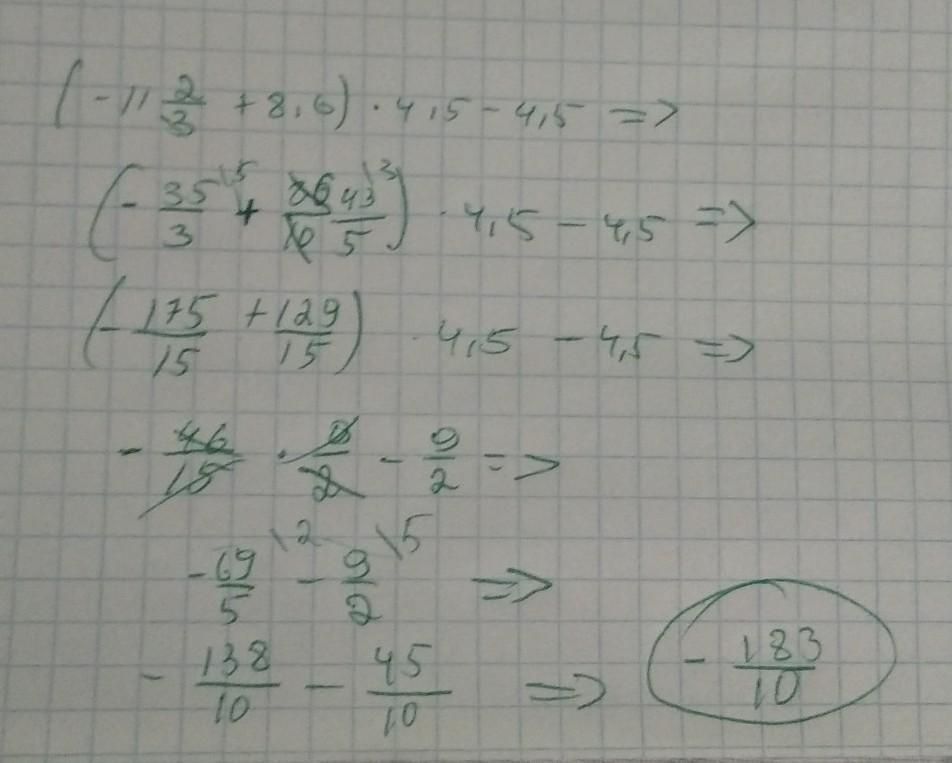 (-11 2/3 + 8,6) · 4,5 - 4,5 =>
(- 35/3 \5 + 86/10 43/5 \3) · 4,5 - 4,5 =>
(- 175/15 + 129/15) · 4,5 - 4,5 =>
- 46/15 · 9/2 - 9/2 =>
- 69/5 \2 - 9/2 \5 =>
- 138/10 - 45/10 => - 183/10